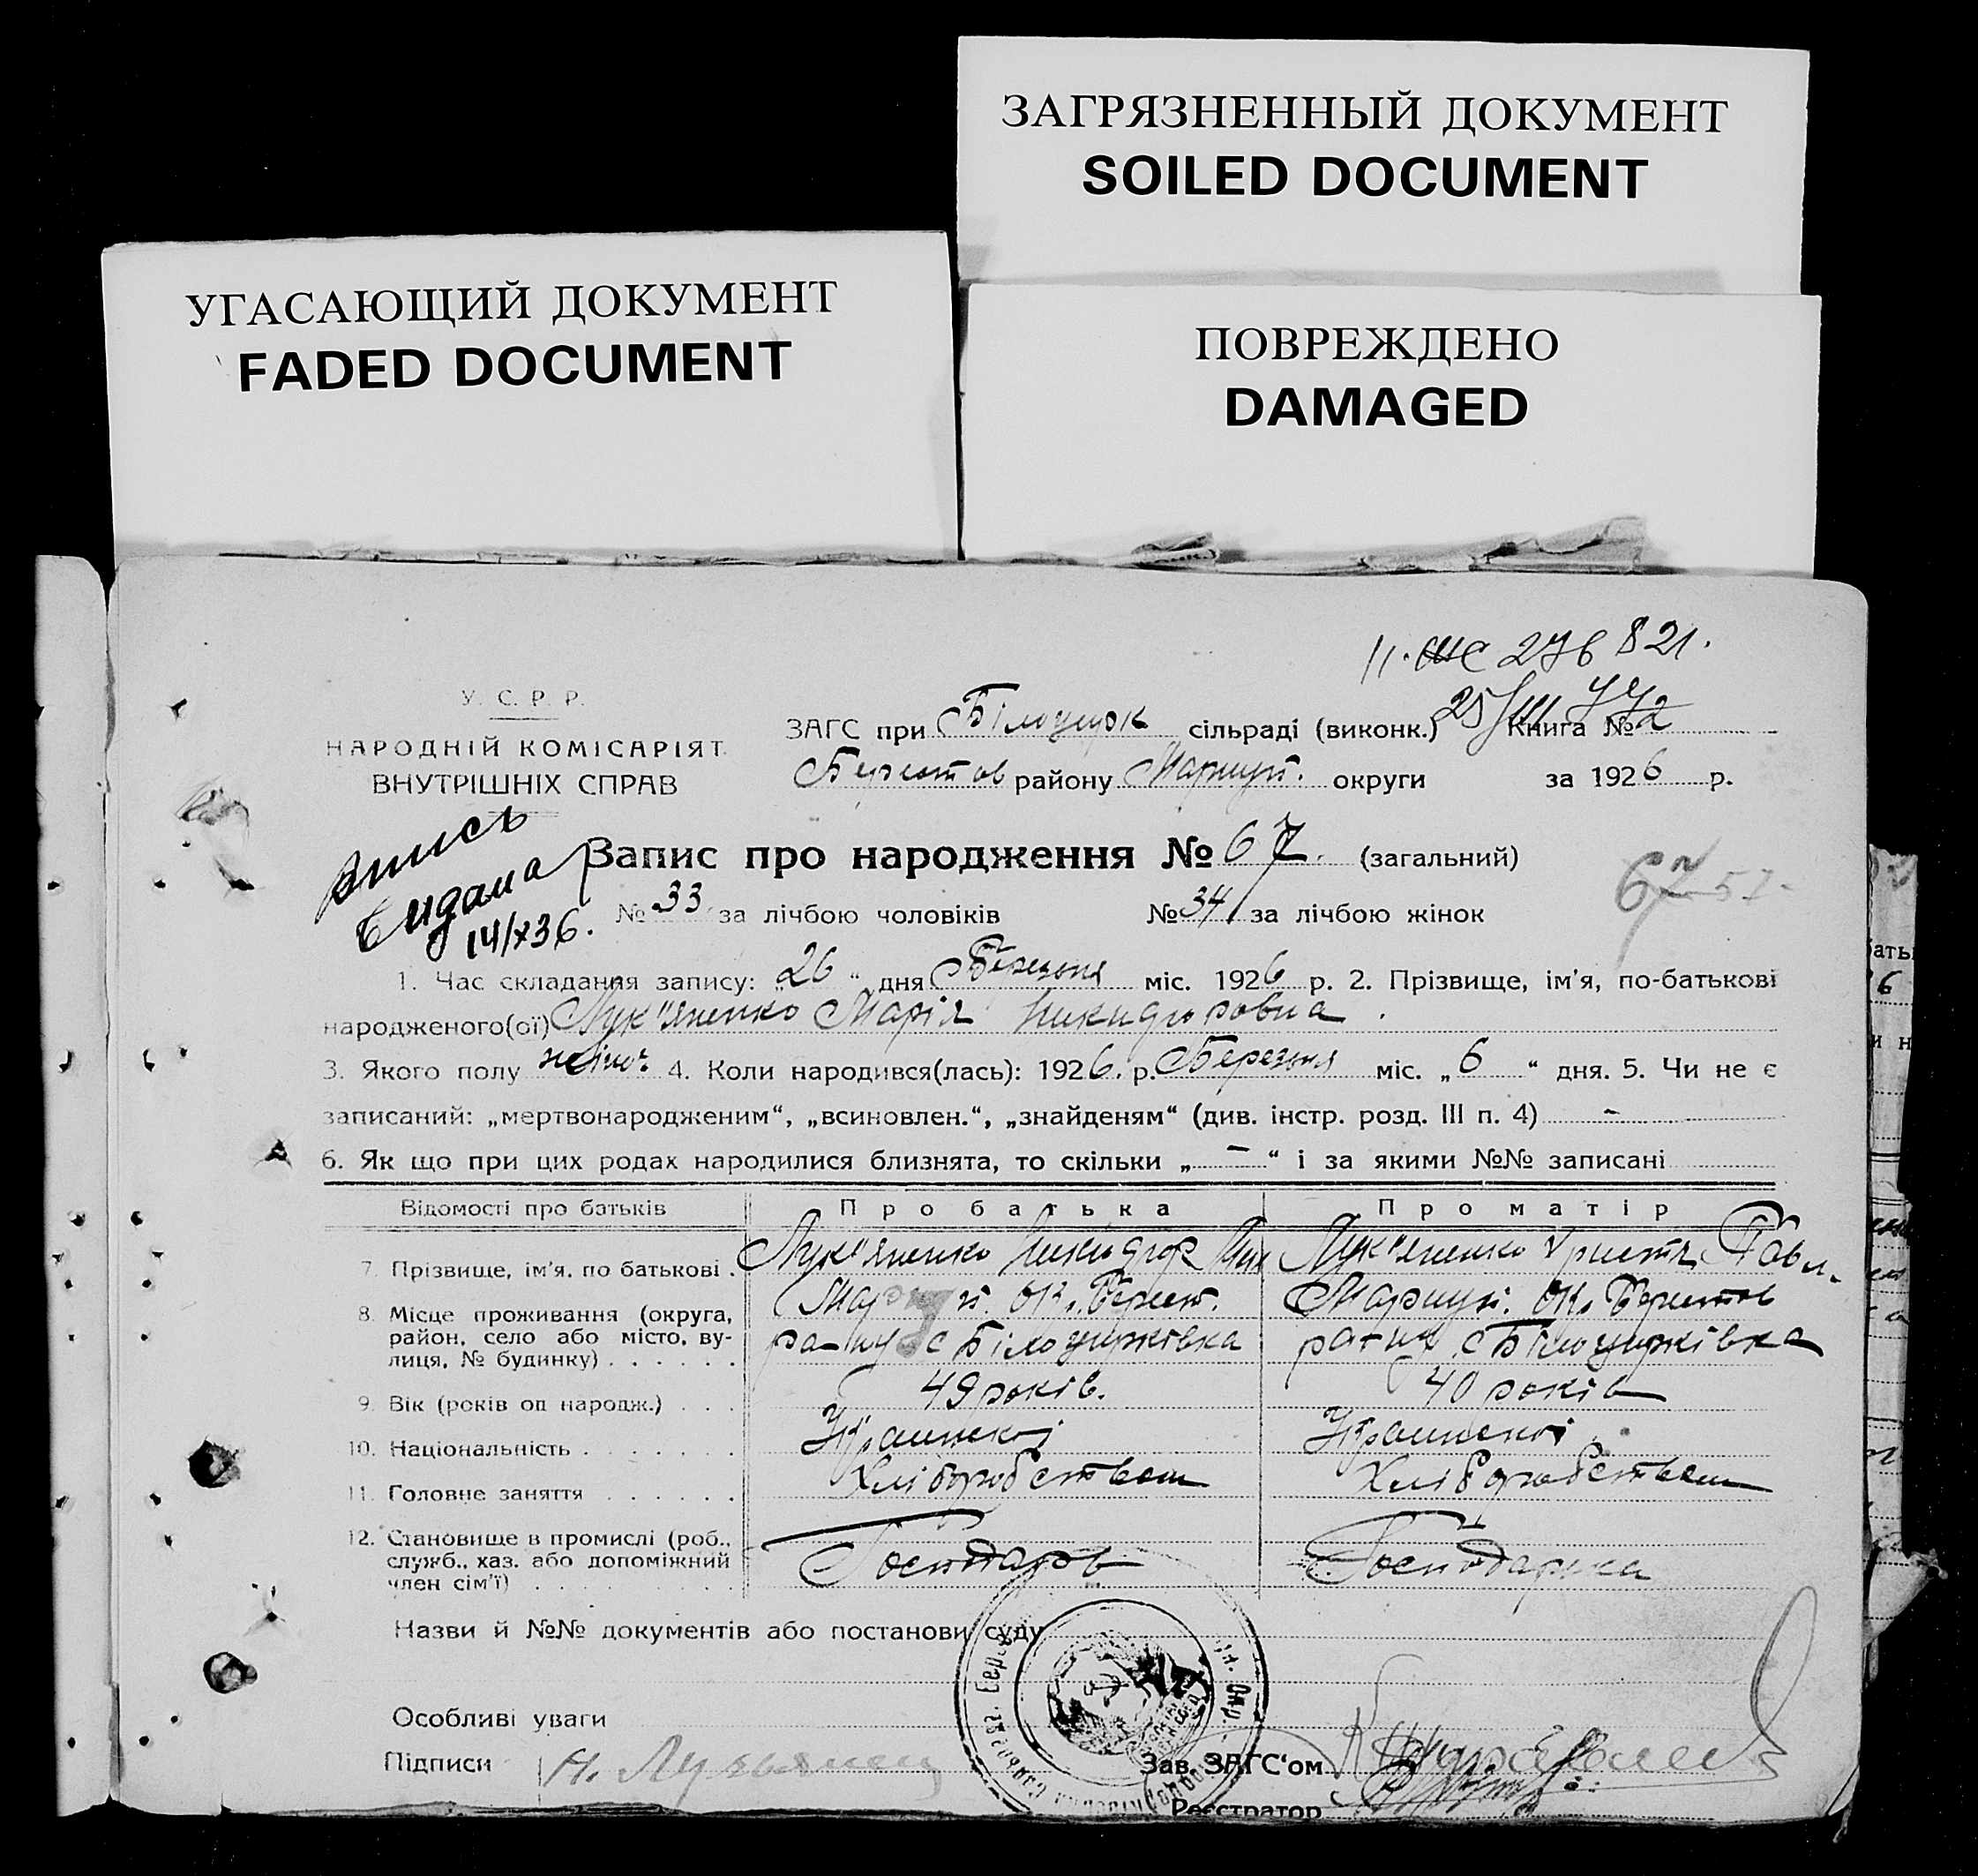 ЗАГРЯЗНЕННЫЙ ДОКУМЕНТ
SOILED DOCUMENT
УГАСАЮЩИЙ ДОКУМЕНТ
FADED DOCUMENT
ПОВРЕЖДЕНО
DAMAGED
276821.
У. С. Р. Р.
НАРОДНІЙ КОМІСАРІЯТ
ВНУТРІШНІХ СПРАВ
ЗАГС при Білоцерк сільраді (виконк.) Книга № 2
Берестов району Маріуп. округи за 1926 р.
Запис про народження № 67. (загальний)
14/X 36.
№ 33 за лічбою чоловіків № 34 за лічбою жінок
1. Час складання запису: „26“ дня Березня міс. 1926 р. 2. Прізвище, ім'я, по-батькові
народженого(ої) Лук'яненко Марія Никифоровна.
3. Якого полу жіноч. 4. Коли народився(лась): 1926. р. Березня міс. „6“ дня. 5. Чи не є
записаний: „мертвонародженим“, „всиновлен.“, „знайденям“ (див. інстр. розд. III п. 4) -
6. Як що при цих родах народилися близнята, то скільки „-“ і за якими №№ записані
Відомості про батьків Про батька Про матір
7. Прізвище, ім'я, по батькові. Лук'яненко Никифор Лук'яненко Христя Павл.
8. Місце проживання (округа, район, село або місто, вулиця, № будинку) Маріуп. Ок. Берест. району с Білоцерківка Маріуп. Ок. Берестов району с Білоцерківка
9. Вік (років од народж.) 49 років. 40 років
10. Національність Украинскої Украинскої
11. Головне заняття Хліборобством Хліборобством
12. Становище в промислі (роб., служб., хаз. або допоміжний член сім'ї) Господарь Господарка
Назви й №№ документів або постанови суду
Особливі уваги
Підписи Н. Зав. ЗАГС'ом
Реєстратор